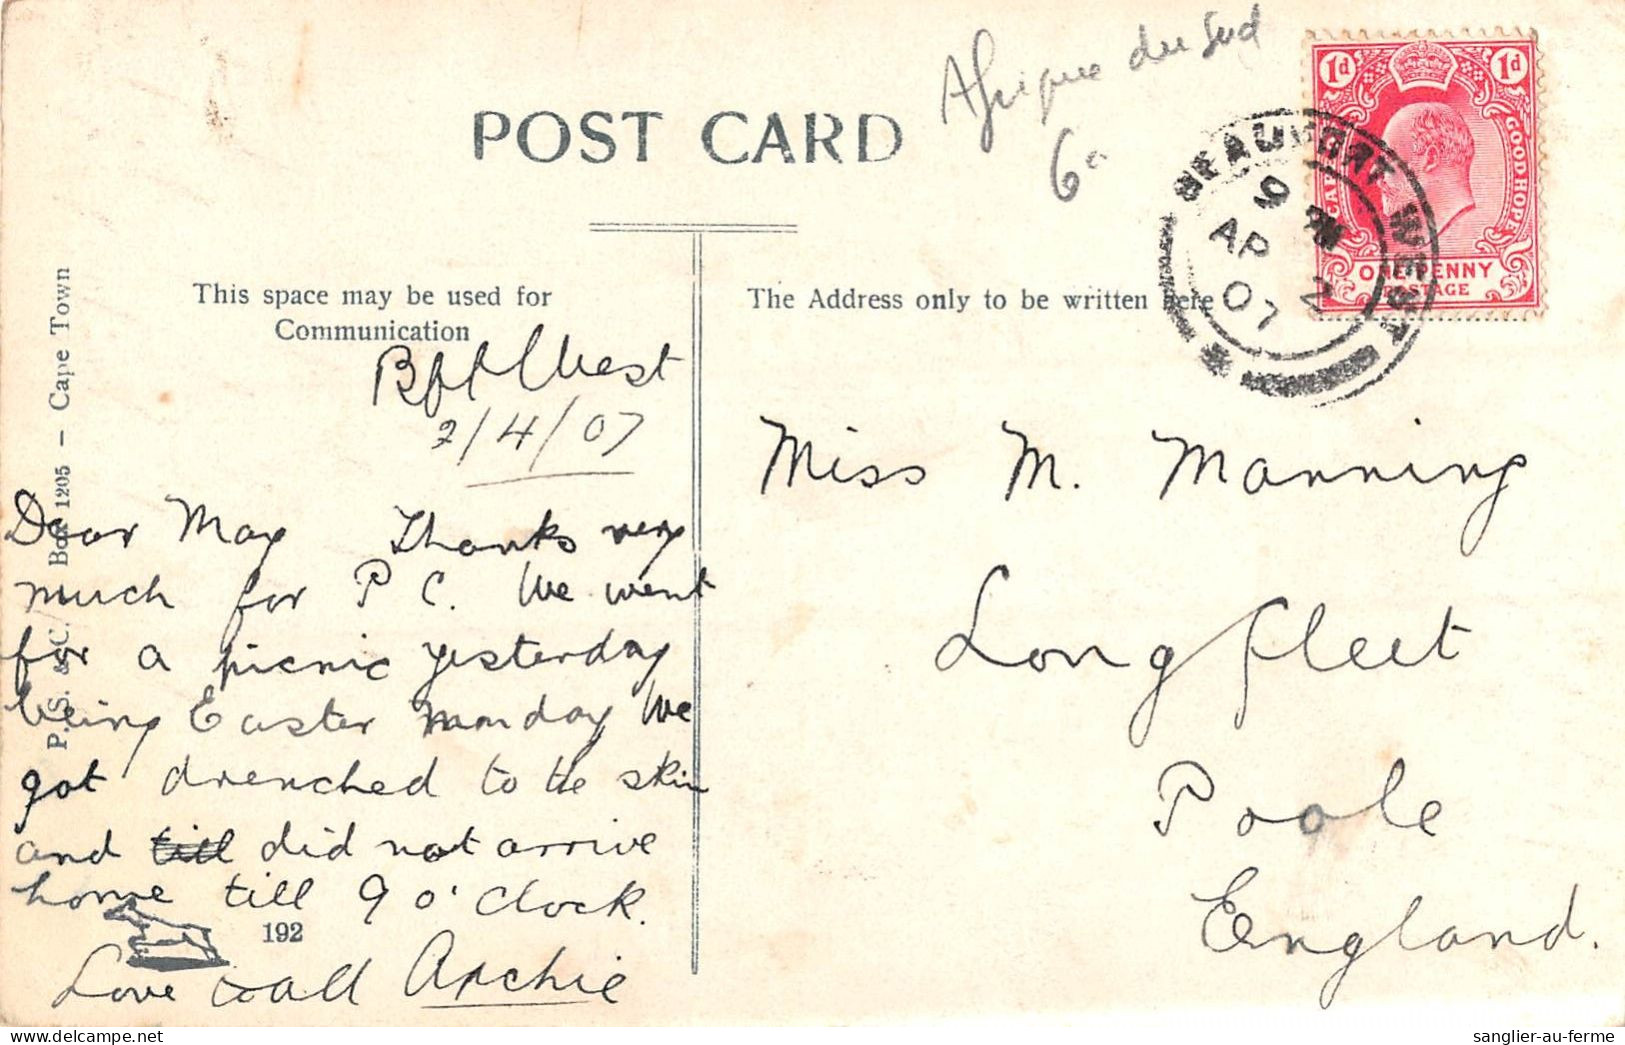 Afrique du Sud
6
POST CARD
1d 1d
CAPE OF GOOD HOPE
ONE PENNY
POSTAGE
BEAUFORT WEST
9 PM
AP 2
07
This space may be used for
Communication
The Address only to be written here
P. S. & C. Box 1205 – Cape Town
Bft West
2/4/07
Dear May Thanks very
much for P C. We went
for a picnic yesterday
being Easter Monday We
got drenched to the skin
and till did not arrive
home till 9 o'clock.
192
Love to all Archie
Miss M. Manning
Longfleet
Poole
England.
sanglier-au-ferme
delcampe.net